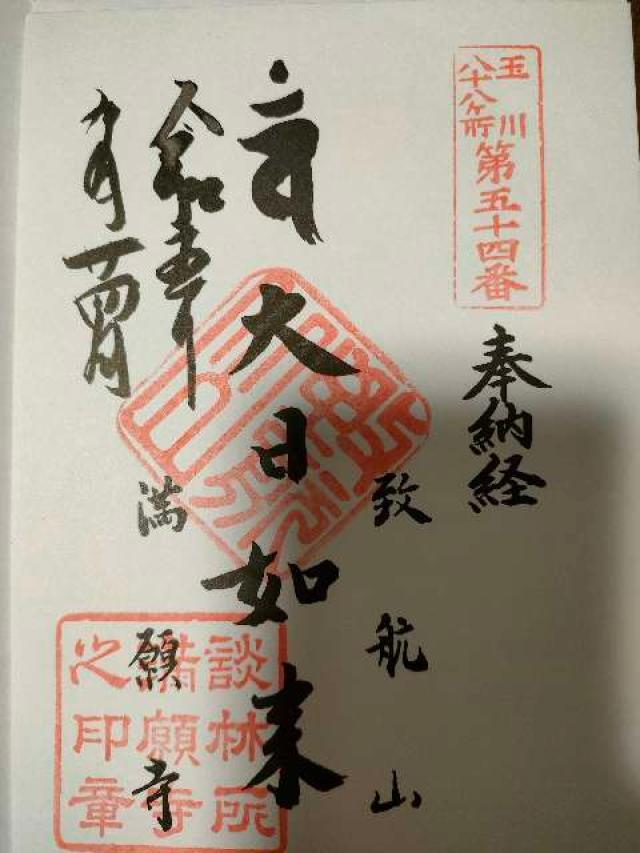 玉川
八十八ヶ所
第五十四番
奉納経
致航山
大日如来
満願寺
令和五年
九月十四日
談林所
満願寺
之印章